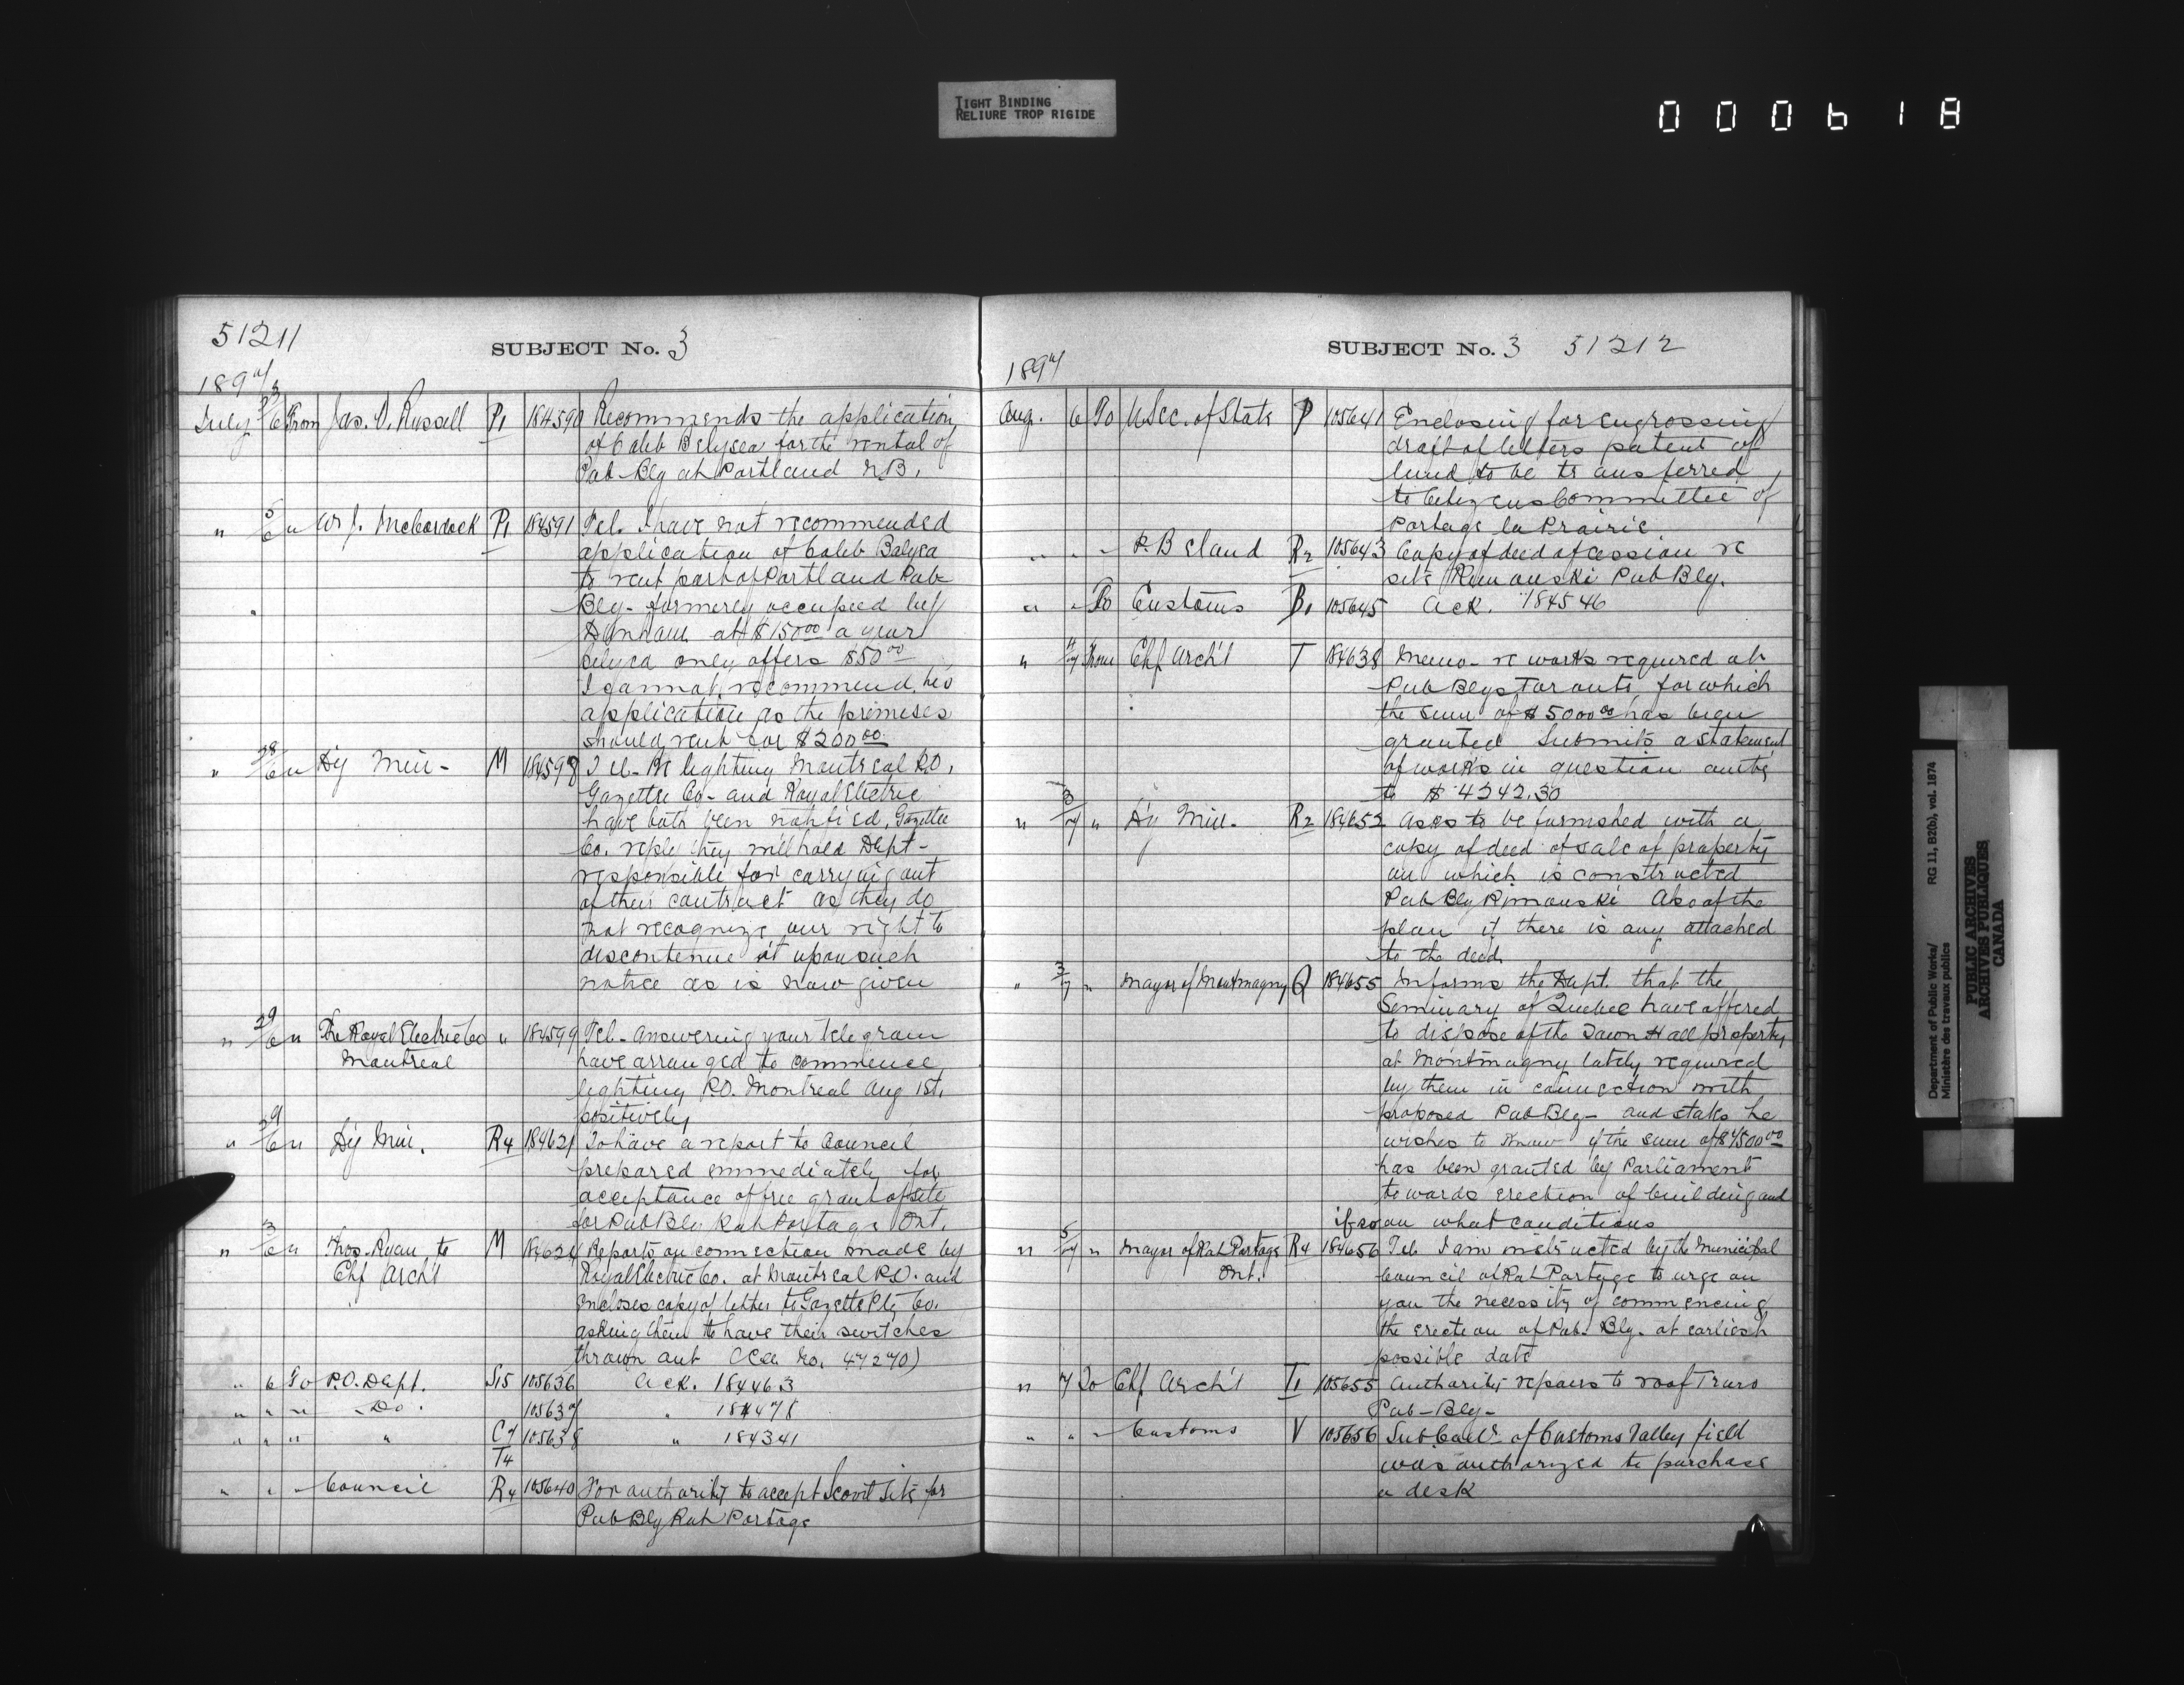 TIGHT BINDING
RELIURE TROP RIGIDE
000618
51211
SUBJECT No. 3
1897
July 3/6 From Jas. D. Russell P1 184590 Recommends the application
of Caleb Belyea for the rental of
Pub-Blg at Portland N.B.
" 5/6 " W. J. P1 184591 Tel. I have not recommended
application of Caleb Belyea
to rent part of Portland Pub
Blg- formerly occupied by
at $150 00 a year
Belyea only offers $50 00
I cannot recommend his
application as the premises
should rent for $200 00
" 28/6 " Dy Min- M 184598 Tel- re lighting Montreal P.O.
Gazette Co- and Royal Electric
have both been notified, Gazette
Co. reply they will hold Dept-
responsible for carrying out
of their contract as they do
not recognize our right to
discontinue it upon such
notice as is now given
" 29/6 " The Royal Electric Co " 184599 Tel- answering your telegram
Montreal have arranged to commence
lighting P.O. Montreal Aug 1st.
positively
" 29/6 " Dy Min. R4 184621 To have a report to Council
prepared immediately for
acceptance of free grant of site
for Pub Blg Rat Portage Ont.
" 3/6 " Thos. Ryan to M 184624 Reports on connection made by
Chf Arch't Royal Electric Co. at Montreal P.O. and
encloses copy of letter to Gazette Ptg Co.
asking them to have their switches
thrown out (See No. 47270)
" 6 To P.O. Dept. S15 105636 Ack. 184463
" " " Do. 105637 " 184478
" " " " C7 105638 " 184341
T4
" " - Council R4 105640 For authority to accept Scovil site for
Pub Blg Rat Portage
SUBJECT No. 3 51212
1897
Aug. 6 To U Sec. of State P 105641 Enclosing for engrossing
draft of letters patent of
land to be transferred
to Citizens Committee of
Portage la Prairie
" " - R2 105643 Copy of deed of cession re
site Rimouski Pub Blg.
" " To Customs B1 105645 Ack. 184546
" 4/7 From Chf Arch't T 184638 Memo- re works required at
Pub Blgs Toronto for which
the sum of $5000 00 has been
granted Submits a statement
of works in question amtg
to $4242.30
" 3/7 " Dy Min- R2 184652 Asks to be furnished with a
copy of deed of sale of property
on which is constructed
Pub Blg Rimouski Also of the
plan if there is any attached
to the deed.
" 3/7 " Mayor of Montmagny Q 184655 Informs the Dept. that the
Seminary of Quebec have offered
to dispose of the Town Hall property
at Montmagny lately required
by them in connection with
proposed Pub Blg- and stats he
wishes to know if the sum of $4500 00
has been granted by Parliament
towards erection of building and
if so on what conditions
" 5/7 " Mayor of Rat Portage R4 184656 Tel I am instructed by the Municipal
Ont. Council of Rat Portage to urge on
you the necessity of commencing
the erection of Pub. Blg. at earliest
possible date
" 7 To Chf Arch't T1 105655 Authority repairs to roof Truro
Pub-Blg-
" " - Customs V 105656 Sub Coll. of Customs Valleyfield
was authorized to purchase
a desk
Department of Public Works/
Ministère des travaux publics
RG 11, B2(b), vol. 1874
PUBLIC ARCHIVES
ARCHIVES PUBLIQUES
CANADA